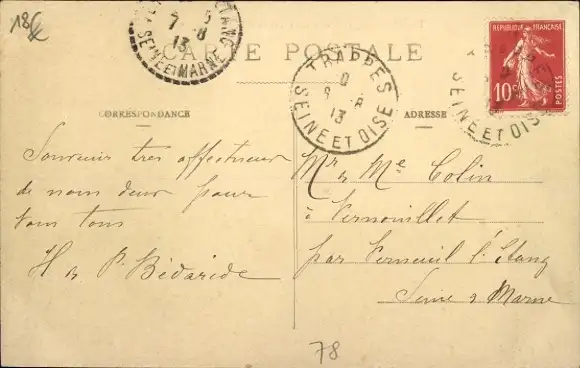 18€
VE ETANG
7 - 8
13
SEINE ET MARNE
CARTE POSTALE
TRAPPES
6 8
13
SEINE ET OISE
REPUBLIQUE FRANÇAISE
10c
POSTES
SEINE ET OISE
CORRESPONDANCE
ADRESSE
Souvenir tres affectueux
de nous deux pour
vous tous
H & P. Bédaride
Mr & Me Colin
à Vernouillet
par Verneuil l'Etang
Seine & Marne
78